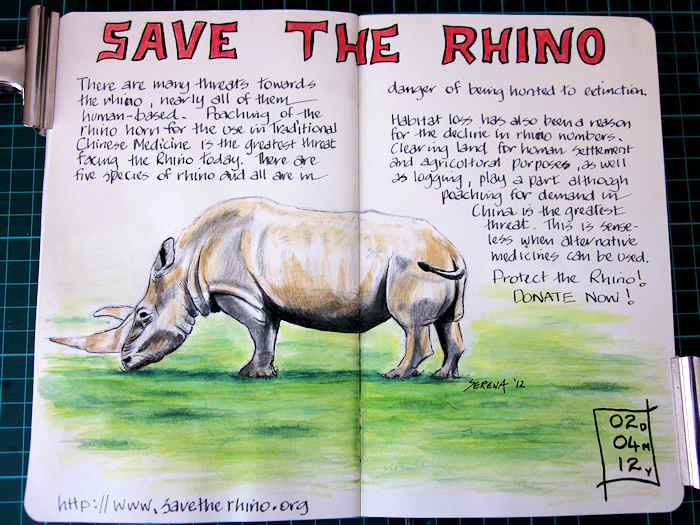 SAVE THE RHINO
There are many threats towards
the rhino, nearly all of them
human-based. Poaching of the
rhino horn for the use in Traditional
Chinese Medicine is the greatest threat
facing the Rhino today. There are
five species of rhino and all are in
danger of being honted to extinction.
Habitat loss has also been a reason
for the decline in rhino numbers.
Clearing land for human settlement
and agricoltural porposes, as well
as logging, play a part although
poaching for demand in
China is the greatest
threat. This is sense-
less when alternative
medicines can be used.
Protect the Rhino!
DONATE NOW!
SERENA '12
02D
04M
12Y
http://www.savetherhino.org